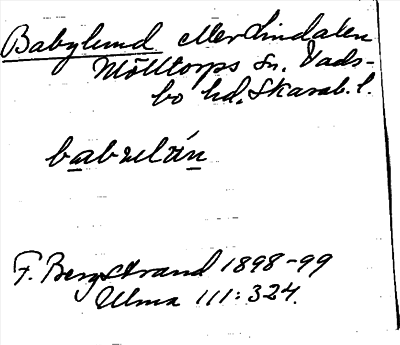 Babylund eller Lindalen
Mölltorps sn. Vads-
bo hd. Skarab. l.
F. Bergstrand 1898-99
Ulma 111:324.